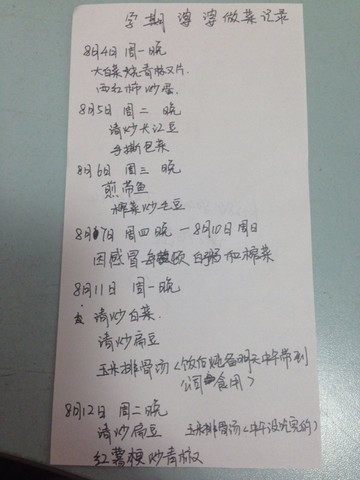 学期婆婆做菜记录
8月4日 周一晚
大白菜烧香菇叉片.
西红柿炒蛋.
8月5日 周二 晚
清炒长江豆
手撕包菜
8月6日 周三 晚
煎带鱼
榨菜炒毛豆
8月7日 周四 晚 — 8月10日 周日
因感冒每顿白粥和榨菜
8月11日 周一晚
清炒白菜.
清炒扁豆
玉米排骨汤(饭后炖备明天中午带到
公司食用)
8月12日 周二晚
清炒扁豆 玉米排骨汤(中午没吃完的)
红薯梗炒青椒